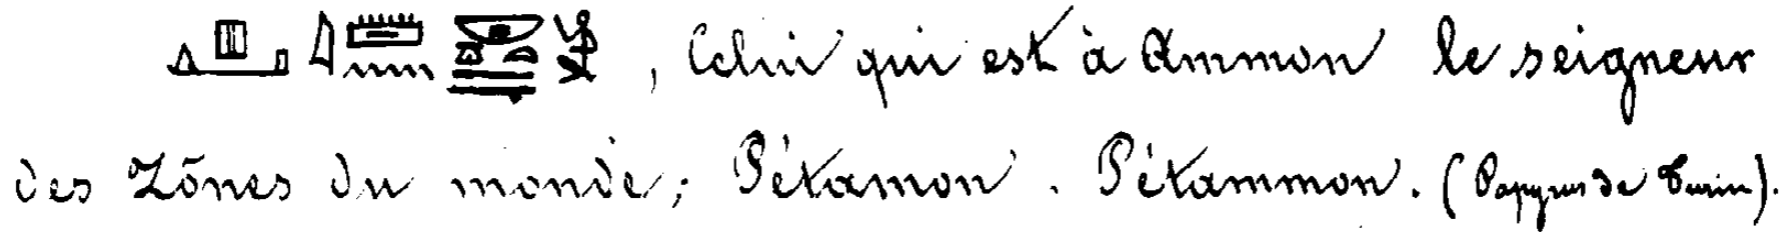 , Celui qui est à Ammon le seigneur
des Zônes du monde; Pétamon. Pétammon. (Papyrus de Turin).